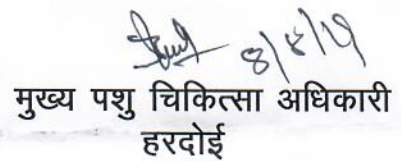 8/8/19
मुख्य पशु चिकित्सा अधिकारी
हरदोई